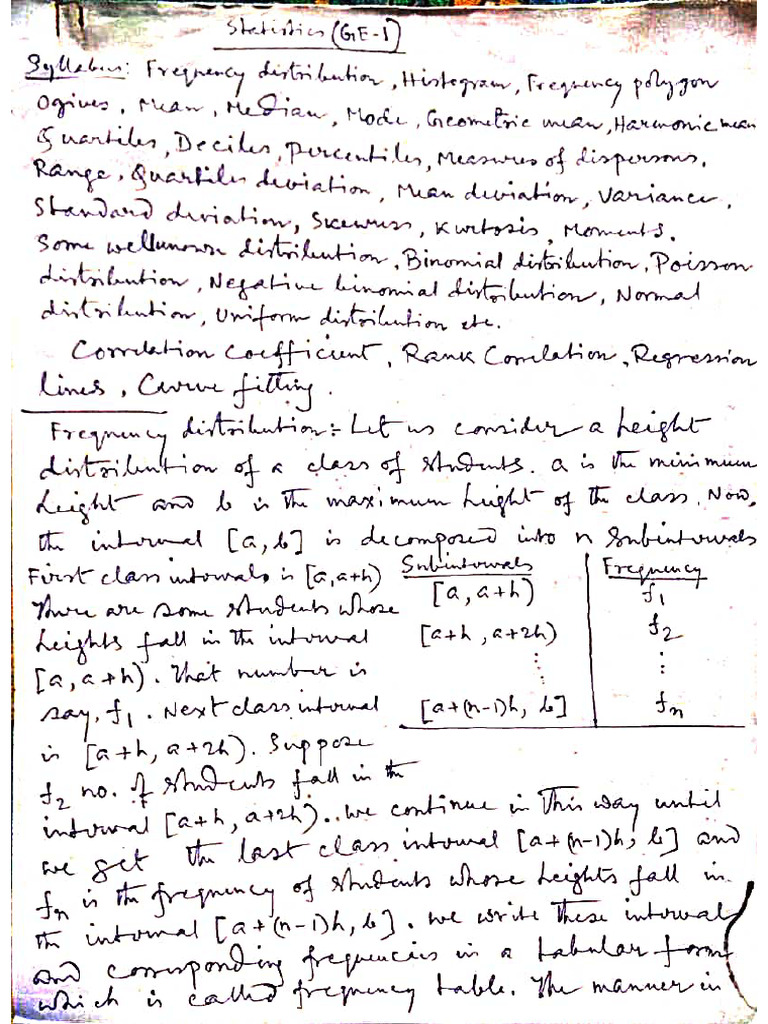 Statistics (GE-1)
Syllabus: Frequency distribution, Histogram, Frequency polygon
Ogives, Mean, Median, Mode, Geometric mean, Harmonic mean
Quartiles, Deciles, Percentiles, Measures of dispersons.
Range, Quartiles deviation, Mean deviation, Variance,
Standard deviation, Skewness, Kurtosis, Moments.
Some wellknown distribution, Binomial distribution, Poisson
distribution, Negative binomial distribution, Normal
distribution, Uniform distribution etc.
Correlation coefficient, Rank Correlation, Regression
lines, Curve fitting.
Frequency distribution:- Let us consider a height
distribution of a class of students. a is the minimum
height and b is the maximum height of the class. Now,
the interval [a, b] is decomposed into n subintervals
First class intervals is [a, a+h)
There are some students whose
heights fall in the interval
[a, a+h). That number is
say, f1. Next class interval
is [a+h, a+2h). Suppose
f2 no. of students fall in the
Subintervals Frequency
[a, a+h) f1
[a+h, a+2h) f2
⋮ ⋮
[a+(n-1)h, b] fn
interval [a+h, a+2h). We continue in this way until
we get the last class interval [a+(n-1)h, b] and
fn is the frequency of students whose heights fall in
the interval [a+(n-1)h, b]. We write these interval
and corresponding frequencies in a tabular form
which is called frequency table. The manner in